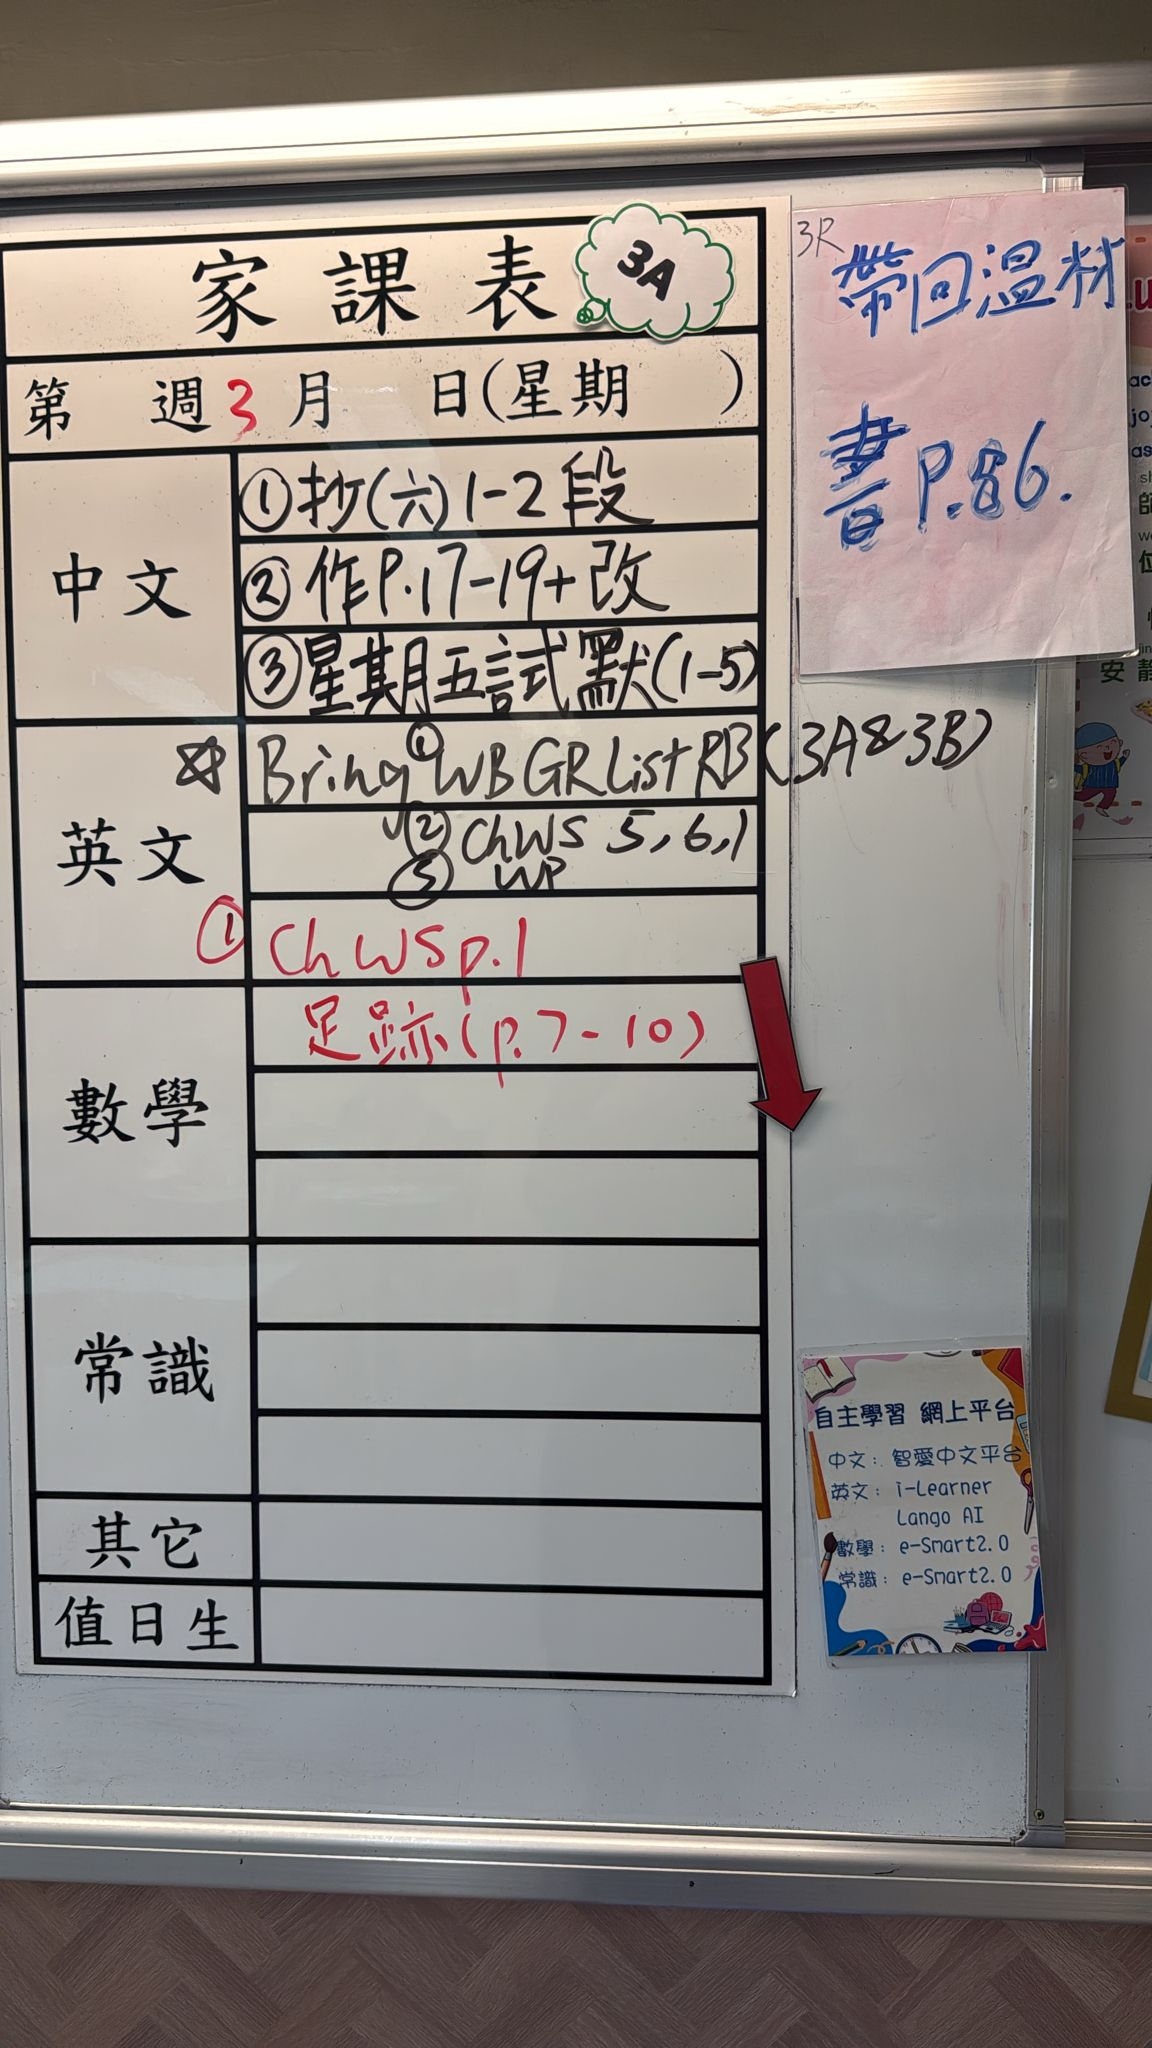 家課表
3A
第 週 3 月 日(星期 )
中文
①抄(六)1-2段
②作P.17-19+改
③星期五試默(1-5)
英文
Bring ①WB GR List RB (3A&3B)
② ChWS 5,6,1
WP
① Ch WS p.1
數學
足跡(p.7-10)
常識
其它
值日生
3R
帶回溫材
書P.86.
自主學習 網上平台
中文: 智愛中文平台
英文: i-Learner
Lango AI
數學: e-Smart2.0
常識: e-Smart2.0
安靜